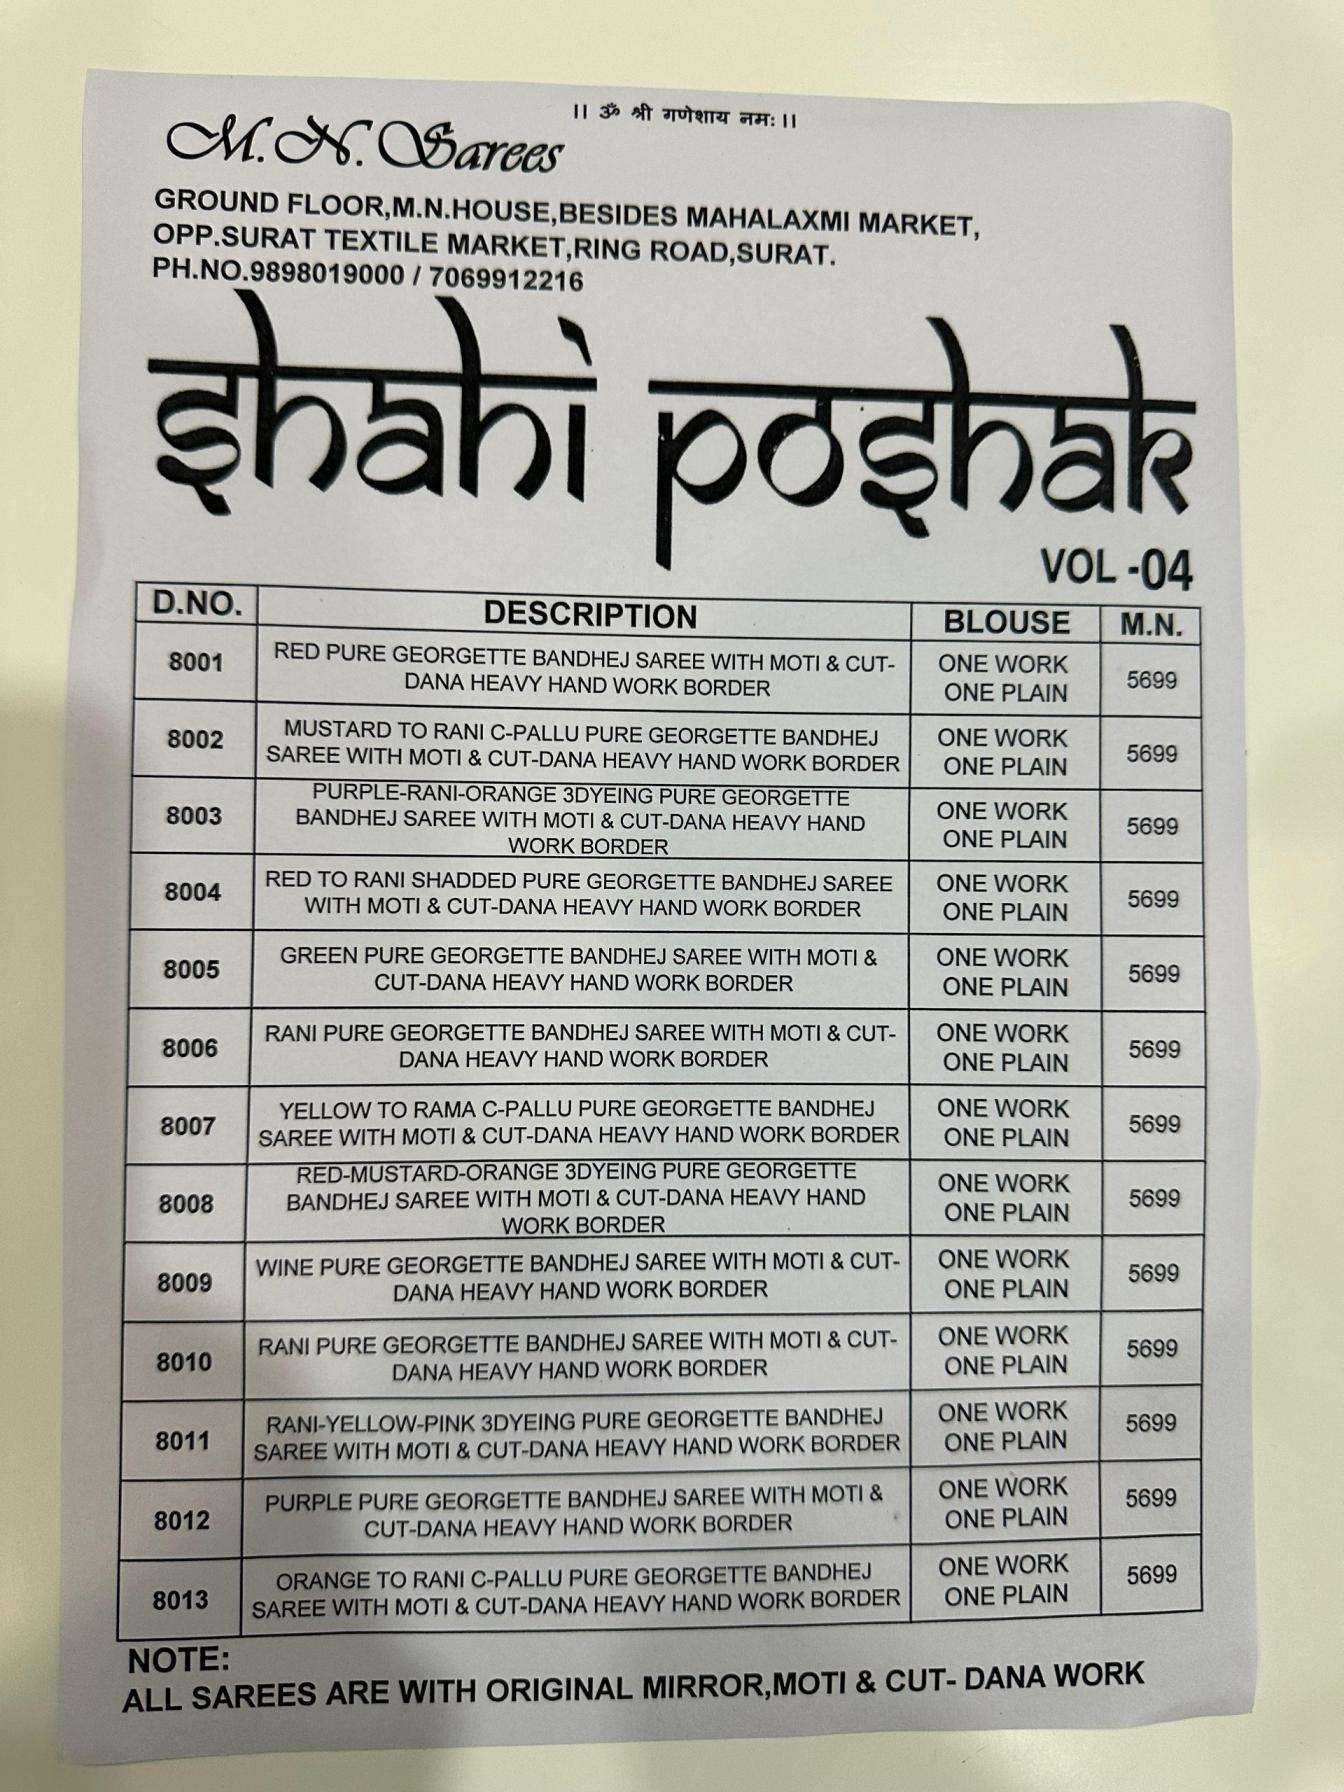 ॥ ॐ श्री गणेशाय नमः ॥
M.N. Sarees
GROUND FLOOR,M.N.HOUSE,BESIDES MAHALAXMI MARKET,
OPP.SURAT TEXTILE MARKET,RING ROAD,SURAT.
PH.NO.9898019000 / 7069912216
shahi poshak
VOL -04
D.NO. DESCRIPTION BLOUSE M.N.
8001 RED PURE GEORGETTE BANDHEJ SAREE WITH MOTI & CUT- ONE WORK 5699
DANA HEAVY HAND WORK BORDER ONE PLAIN
8002 MUSTARD TO RANI C-PALLU PURE GEORGETTE BANDHEJ ONE WORK 5699
SAREE WITH MOTI & CUT-DANA HEAVY HAND WORK BORDER ONE PLAIN
PURPLE-RANI-ORANGE 3DYEING PURE GEORGETTE ONE WORK
8003 BANDHEJ SAREE WITH MOTI & CUT-DANA HEAVY HAND 5699
WORK BORDER ONE PLAIN
8004 RED TO RANI SHADDED PURE GEORGETTE BANDHEJ SAREE ONE WORK 5699
WITH MOTI & CUT-DANA HEAVY HAND WORK BORDER ONE PLAIN
8005 GREEN PURE GEORGETTE BANDHEJ SAREE WITH MOTI & ONE WORK 5699
CUT-DANA HEAVY HAND WORK BORDER ONE PLAIN
8006 RANI PURE GEORGETTE BANDHEJ SAREE WITH MOTI & CUT- ONE WORK 5699
DANA HEAVY HAND WORK BORDER ONE PLAIN
8007 YELLOW TO RAMA C-PALLU PURE GEORGETTE BANDHEJ ONE WORK 5699
SAREE WITH MOTI & CUT-DANA HEAVY HAND WORK BORDER ONE PLAIN
RED-MUSTARD-ORANGE 3DYEING PURE GEORGETTE ONE WORK
8008 BANDHEJ SAREE WITH MOTI & CUT-DANA HEAVY HAND 5699
WORK BORDER ONE PLAIN
8009 WINE PURE GEORGETTE BANDHEJ SAREE WITH MOTI & CUT- ONE WORK 5699
DANA HEAVY HAND WORK BORDER ONE PLAIN
8010 RANI PURE GEORGETTE BANDHEJ SAREE WITH MOTI & CUT- ONE WORK 5699
DANA HEAVY HAND WORK BORDER ONE PLAIN
8011 RANI-YELLOW-PINK 3DYEING PURE GEORGETTE BANDHEJ ONE WORK 5699
SAREE WITH MOTI & CUT-DANA HEAVY HAND WORK BORDER ONE PLAIN
8012 PURPLE PURE GEORGETTE BANDHEJ SAREE WITH MOTI & ONE WORK 5699
CUT-DANA HEAVY HAND WORK BORDER ONE PLAIN
8013 ORANGE TO RANI C-PALLU PURE GEORGETTE BANDHEJ ONE WORK 5699
SAREE WITH MOTI & CUT-DANA HEAVY HAND WORK BORDER ONE PLAIN
NOTE:
ALL SAREES ARE WITH ORIGINAL MIRROR,MOTI & CUT- DANA WORK